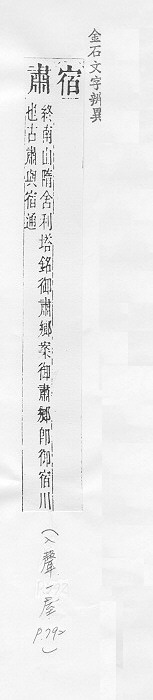 金石文字辨異
宿
肅
終南山隋舍利塔銘御肅鄉案御肅鄉即御宿川
也古肅與宿通
(入聲一屋
P.792)